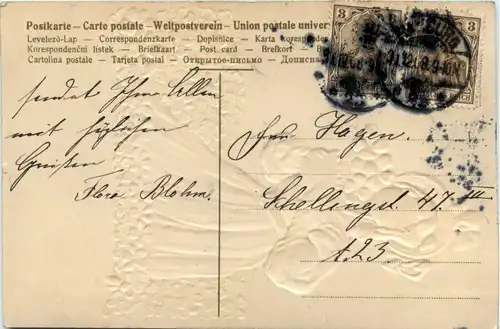 Postkarte – Carte postale – Weltpostverein – Union postale univer
Levelező-Lap – Correspondenzkarte – Dopisnice – Karta korespon
Korespondenční listek – Briefkaart – Post card – Brefkort – B
Cartolina postale – Tarjeta postal – Открытое-письмо – Дописна
3 3
sendet Ihnen Allen
mit herzlichen
Grüßen
Flora Blohm.
Hagen.
Schellingst. 47. III
A. 23